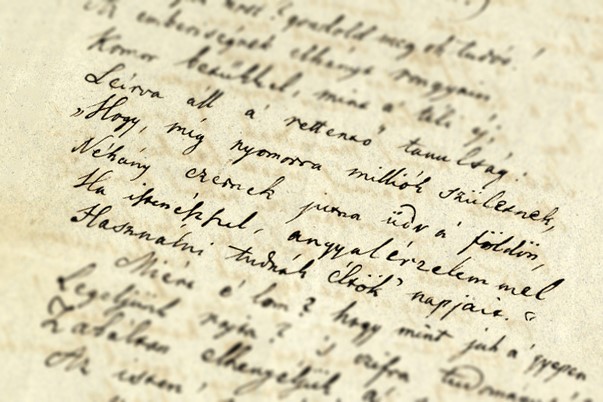 most? gondold meg oh tudós!
Az emberiségnek elhányt rongyain
Komor betükkel, mint a' téli éj,
Leirva áll a' rettentő tanulság:
„Hogy, míg nyomorra milliók születnek,
Néhány ezernek jutna üdv a' földön,
Ha istenésszel, angyalérzelemmel
Használni tudnák éltök' napjait.“
Miért e' lom? hogy mint juh a' gyepen
Legeljünk rajta? 's
Zabáltan a'
Az isten